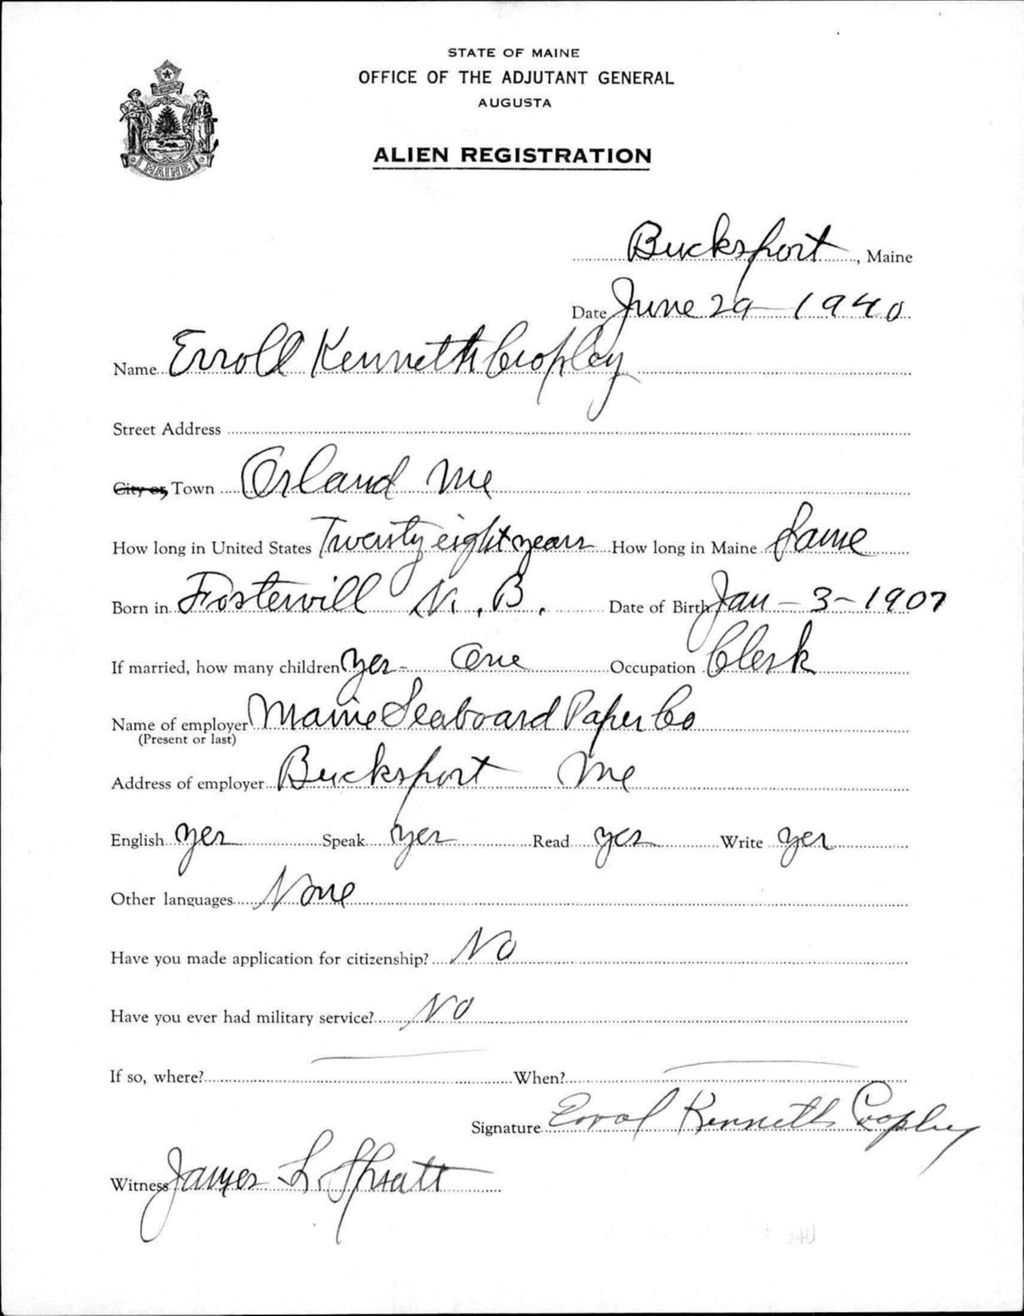 STATE OF MAINE
OFFICE OF THE ADJUTANT GENERAL
AUGUSTA
ALIEN REGISTRATION
MAINE
Bucksport, Maine
Date June 29 - 1940
Name Erroll Kenneth Cropley
Street Address
City or, Town Orland Me
How long in United States Twenty eight years How long in Maine Same
Born in Fostervill N. B. Date of Birth Jan - 3 - 1907
If married, how many children Yes - One Occupation Clerk
Name of employer Maine Seaboard Paper Co
(Present or last)
Address of employer Bucksport Me
English Yes Speak Yes Read Yes Write Yes
Other languages None
Have you made application for citizenship? No
Have you ever had military service? No
If so, where? When?
Signature Errol Kenneth Cropley
Witness James L. Spratt